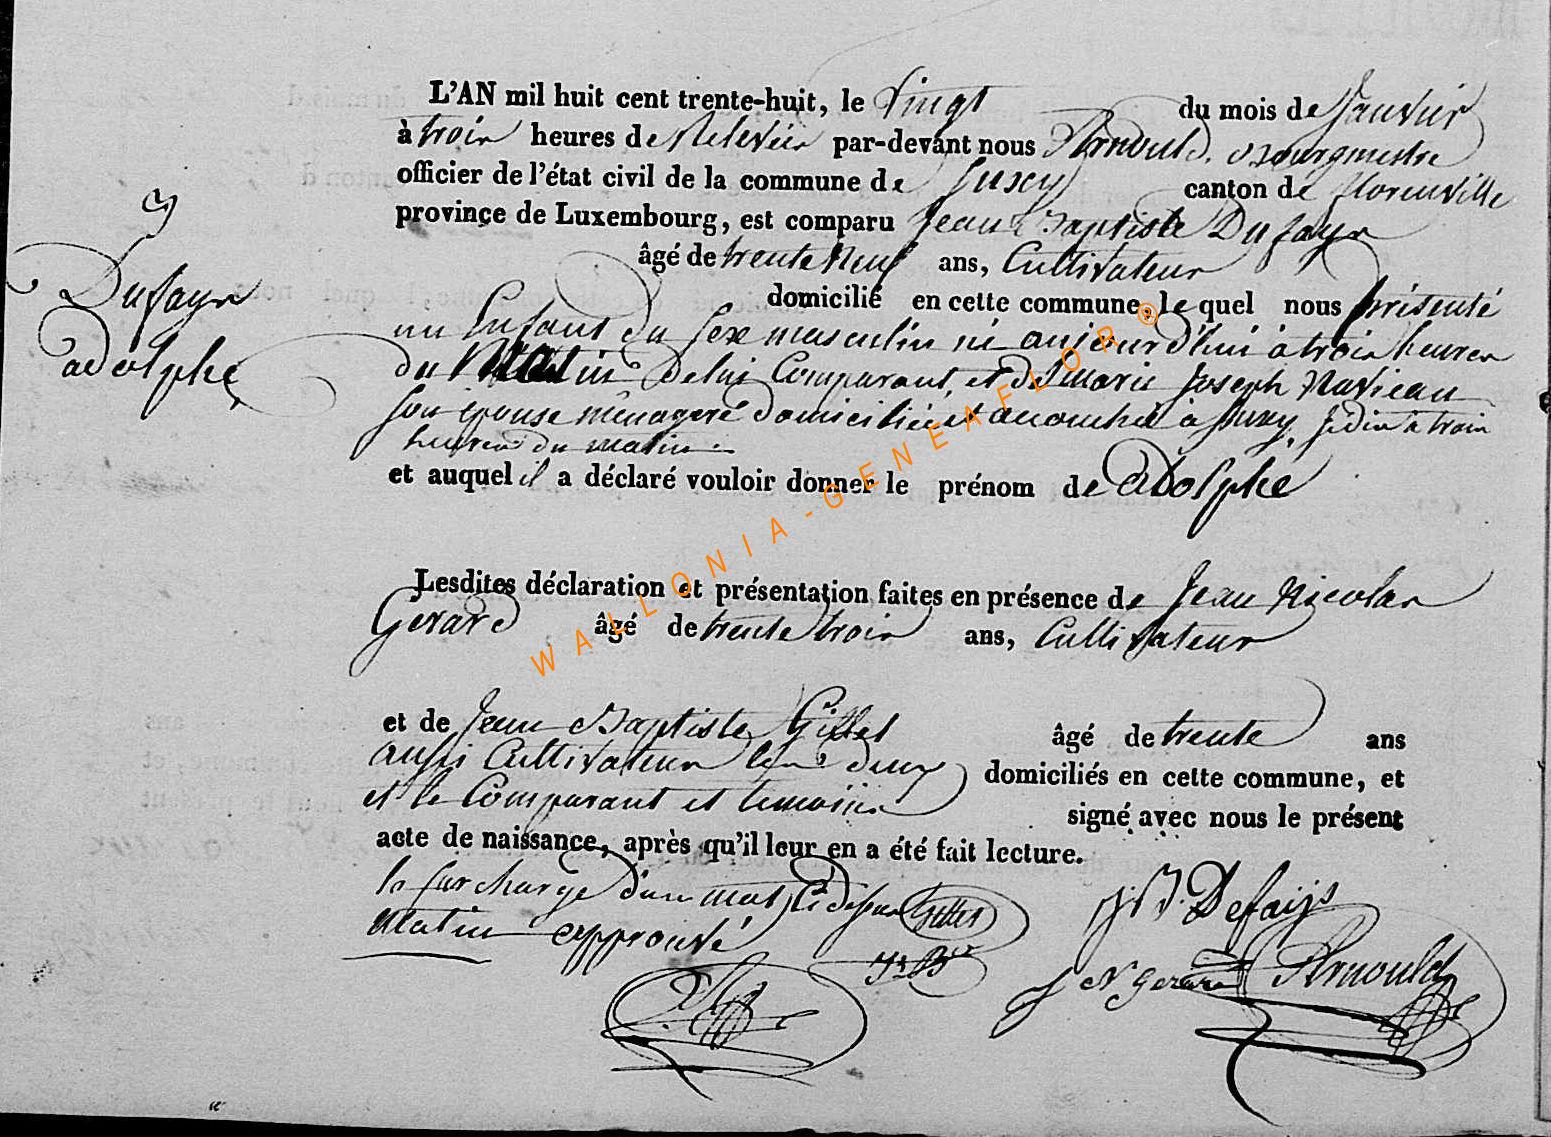 3
Dufays
adolphe
L'AN mil huit cent trente-huit, le vingt du mois de Janvier
à trois heures de Relevée par-devant nous Arnould, Bourgmestre
officier de l'état civil de la commune de Suxy canton de florenville
province de Luxembourg, est comparu Jean Baptiste Dufays
âgé de trente neuf ans, Cultivateur
domicilié en cette commune, le quel nous présenté
un Enfant du sexe masculin né aujourd'hui à trois heures
du Matin De lui Comparant et de marie Joseph
son épouse ménagere domiciliée et accouchée à Suxy, à trois
heures du matin
et auquel il a déclaré vouloir donner le prénom de adolphe
Lesdites déclaration et présentation faites en présence de Jean Nicolas
Gerard âgé de trente trois ans, Cultivateur
et de Jean Baptiste Gillet âgé de trente ans
aussi Cultivateur deux domiciliés en cette commune, et
et le Comparant et temoins signé avec nous le présent
acte de naissance, après qu'il leur en a été fait lecture.
la surcharge d'un mot ci dessus Gillet
Matin approuvé
J. B. Defays
Jn Bte
J N Gerard Arnould
WALLONIA-GENEAFLOR®